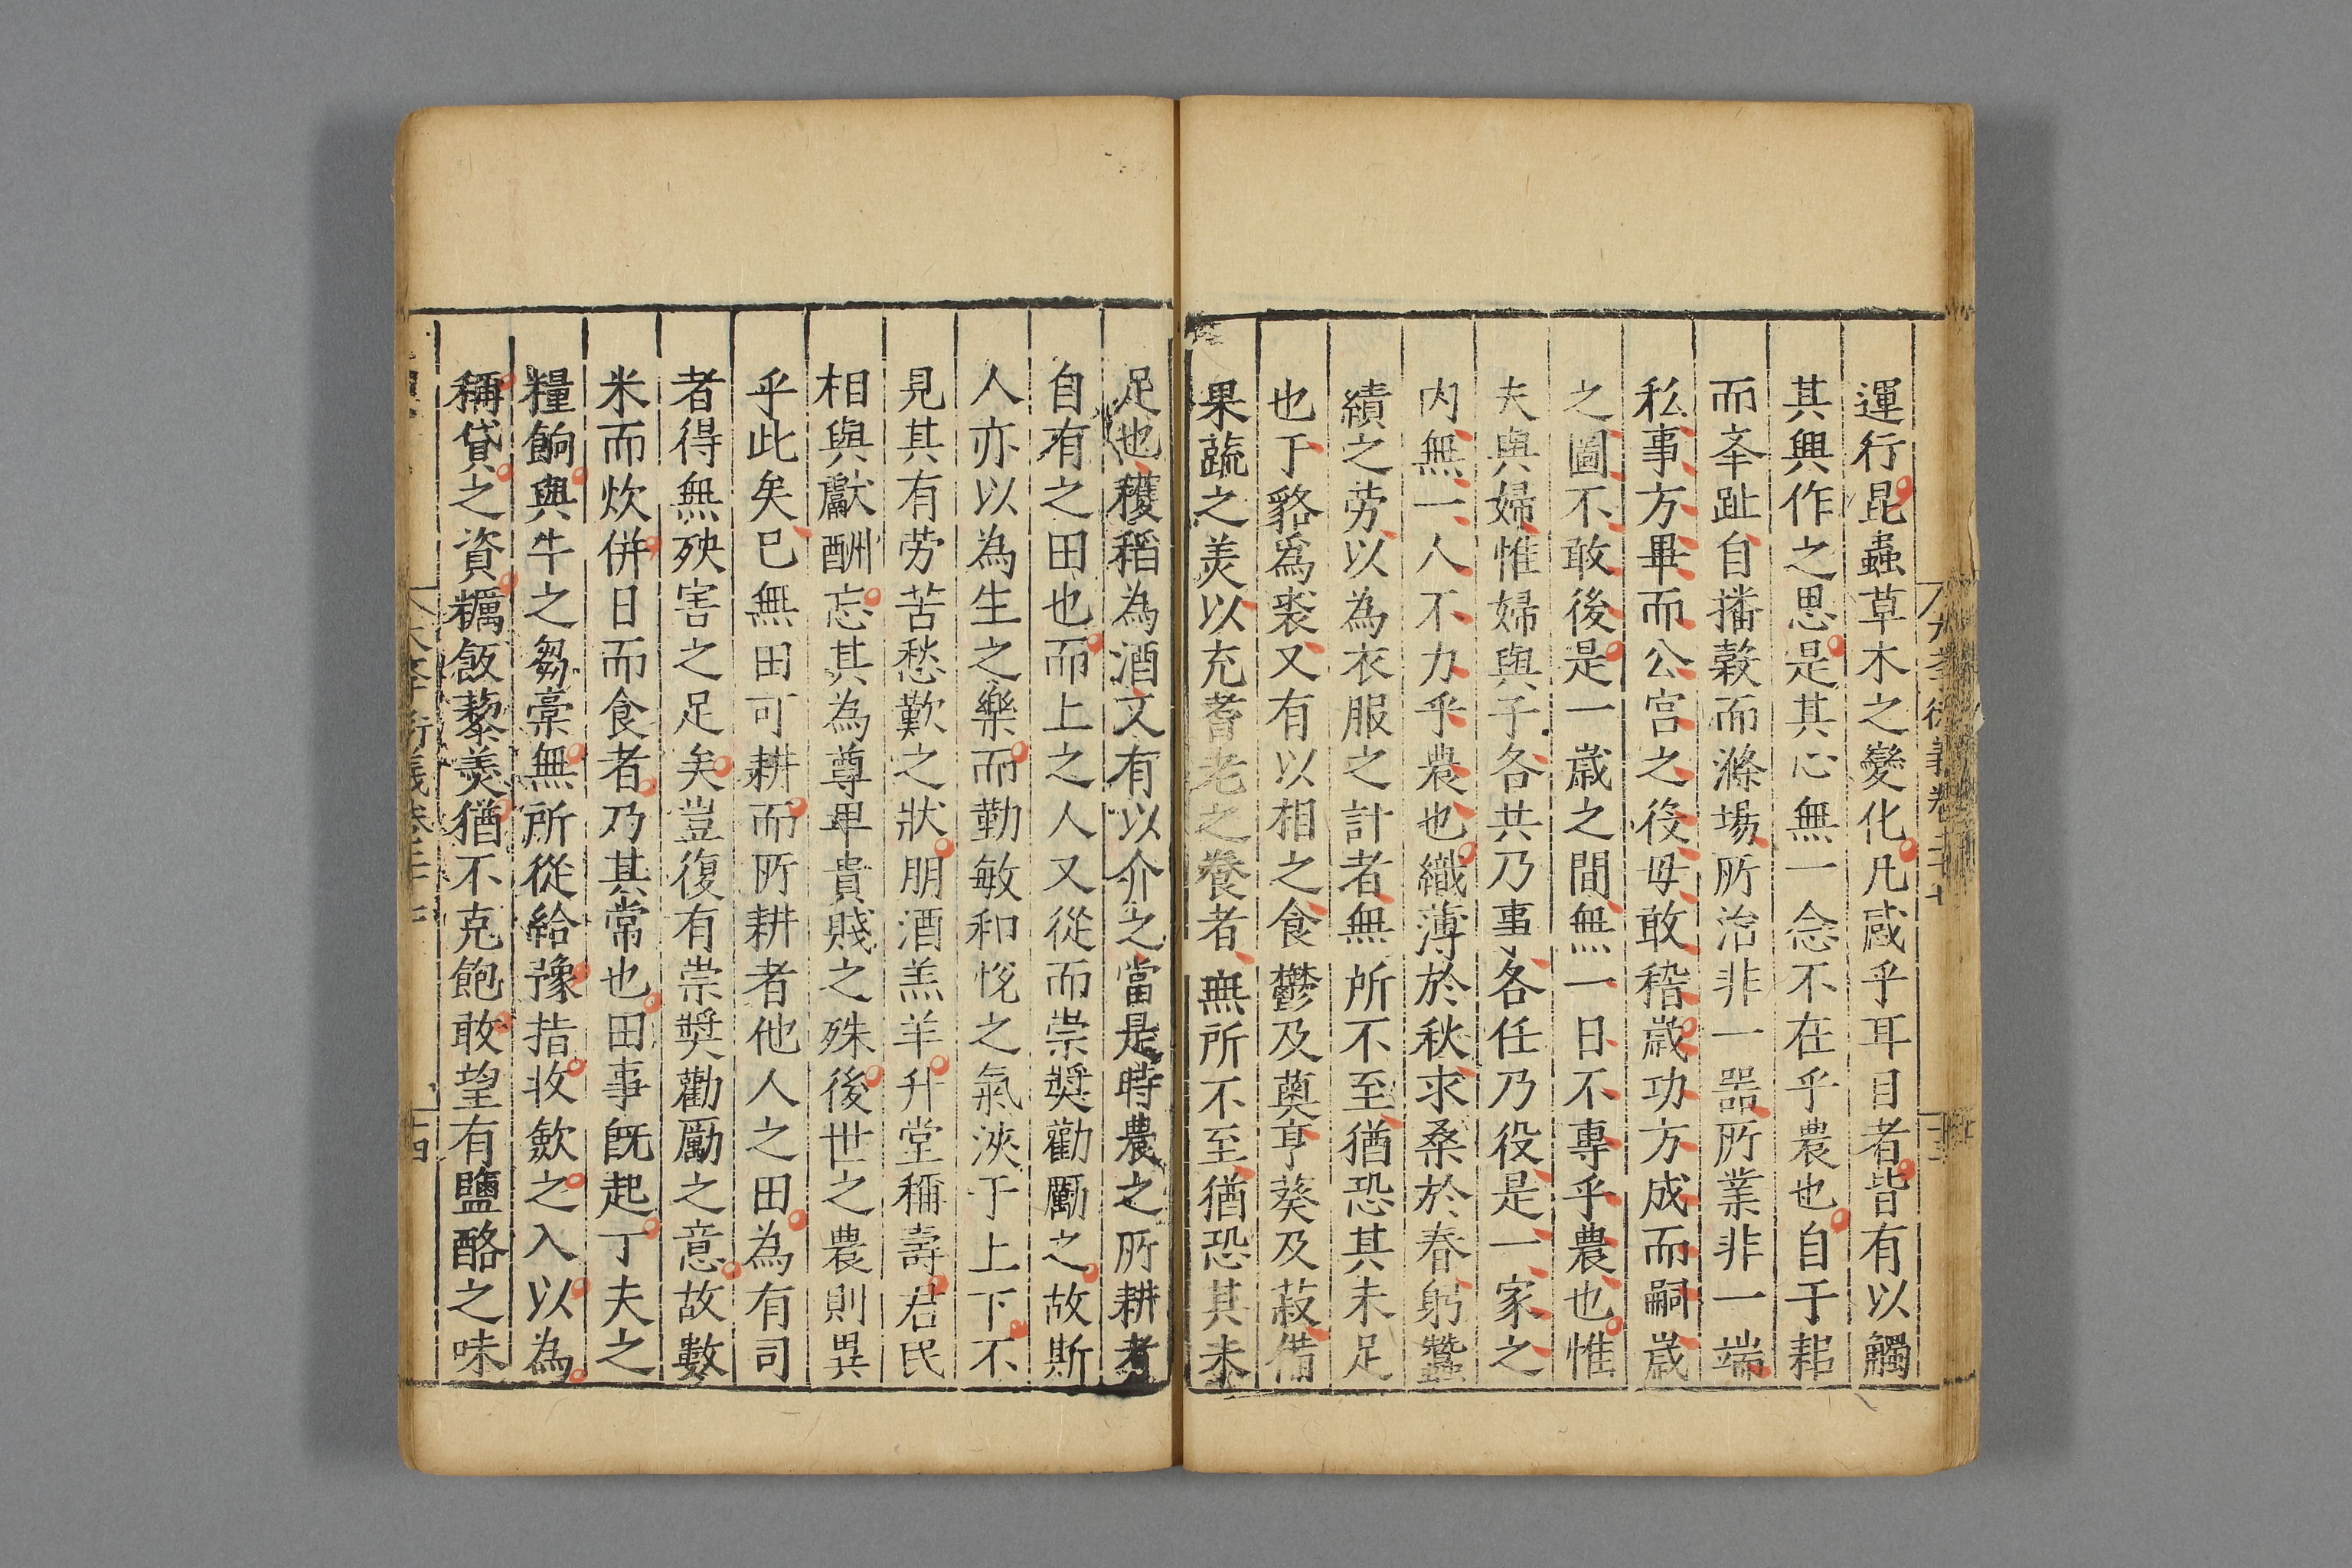 運行昆蟲草木之變化凡感乎耳目者皆有以觸
其興作之思是其心無一念不在乎農也自于耜
而夲趾自播穀而滌場所治非一噐所業非一端
私事方畢而公宮之役毋敢稽歲功方成而嗣歲
之圖不敢後是一歲之間無一日不專乎農也惟
夫與婦惟婦與子各共乃事各任乃役是一家之
内無一人不力乎農也織薄於秋求桑於春躬蠶
績之劳以為衣服之計者無所不至猶恐其未足
也于貉爲裘又有以相之食鬱及薁亨葵及菽備
果蔬之美以充耆老之養者無所不至猶恐其未
足也穫稻為酒又有以介之當是時農之所耕者
自有之田也而上之人又從而崇奬勸勵之故斯
人亦以為生之樂而勤敏和悅之氣浹于上下不
見其有劳苦愁歎之狀朋酒羔羊升堂稱壽君民
相與獻酬忘其為尊卑貴賤之殊後世之農則異
乎此矣巳無田可耕而所耕者他人之田為有司
者得無殃害之足矣豈復有崇奬勸勵之意故數
米而炊併日而食者乃其常也田事旣起丁夫之
糧餉與牛之芻藁無所從給豫指收歛之入以為
稱貸之資糲飯藜羹猶不克飽敢望有鹽酪之味